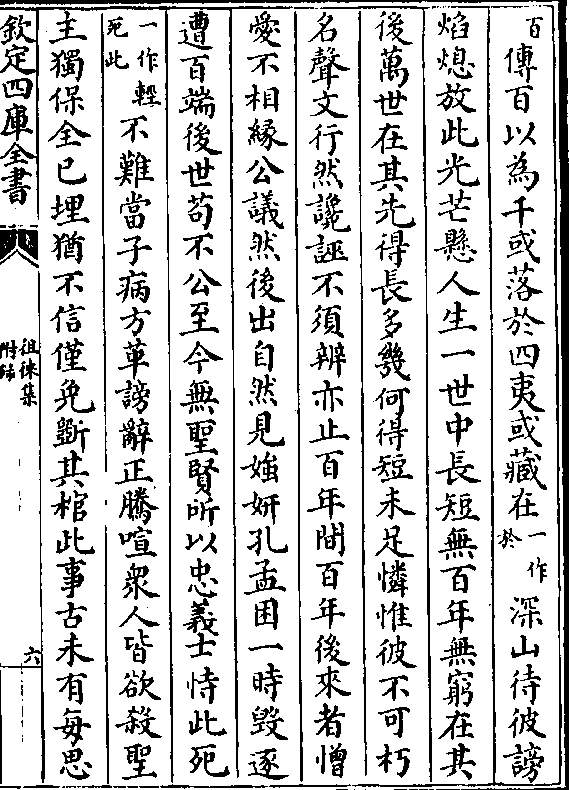 百傳百以為千或落於四夷或藏在一作於深山待彼謗
焰熄放此光芒懸人生一世中長短無百年無窮在其
後萬世在其先得長多幾何得短未足憐惟彼不可朽
名聲文行然讒誣不須辨亦止百年間百年後來者憎
愛不相緣公議然後出自然見媸妍孔孟困一時毀逐
遭百端後世苟不公至今無聖賢所以忠義士恃此死
一作輕死此不難當子病方革謗辭正騰喧衆人皆欲殺聖
主獨保全已埋猶不信僅免斲其棺此事古未有每思
欽定四庫全書
徂徠集
附録
六